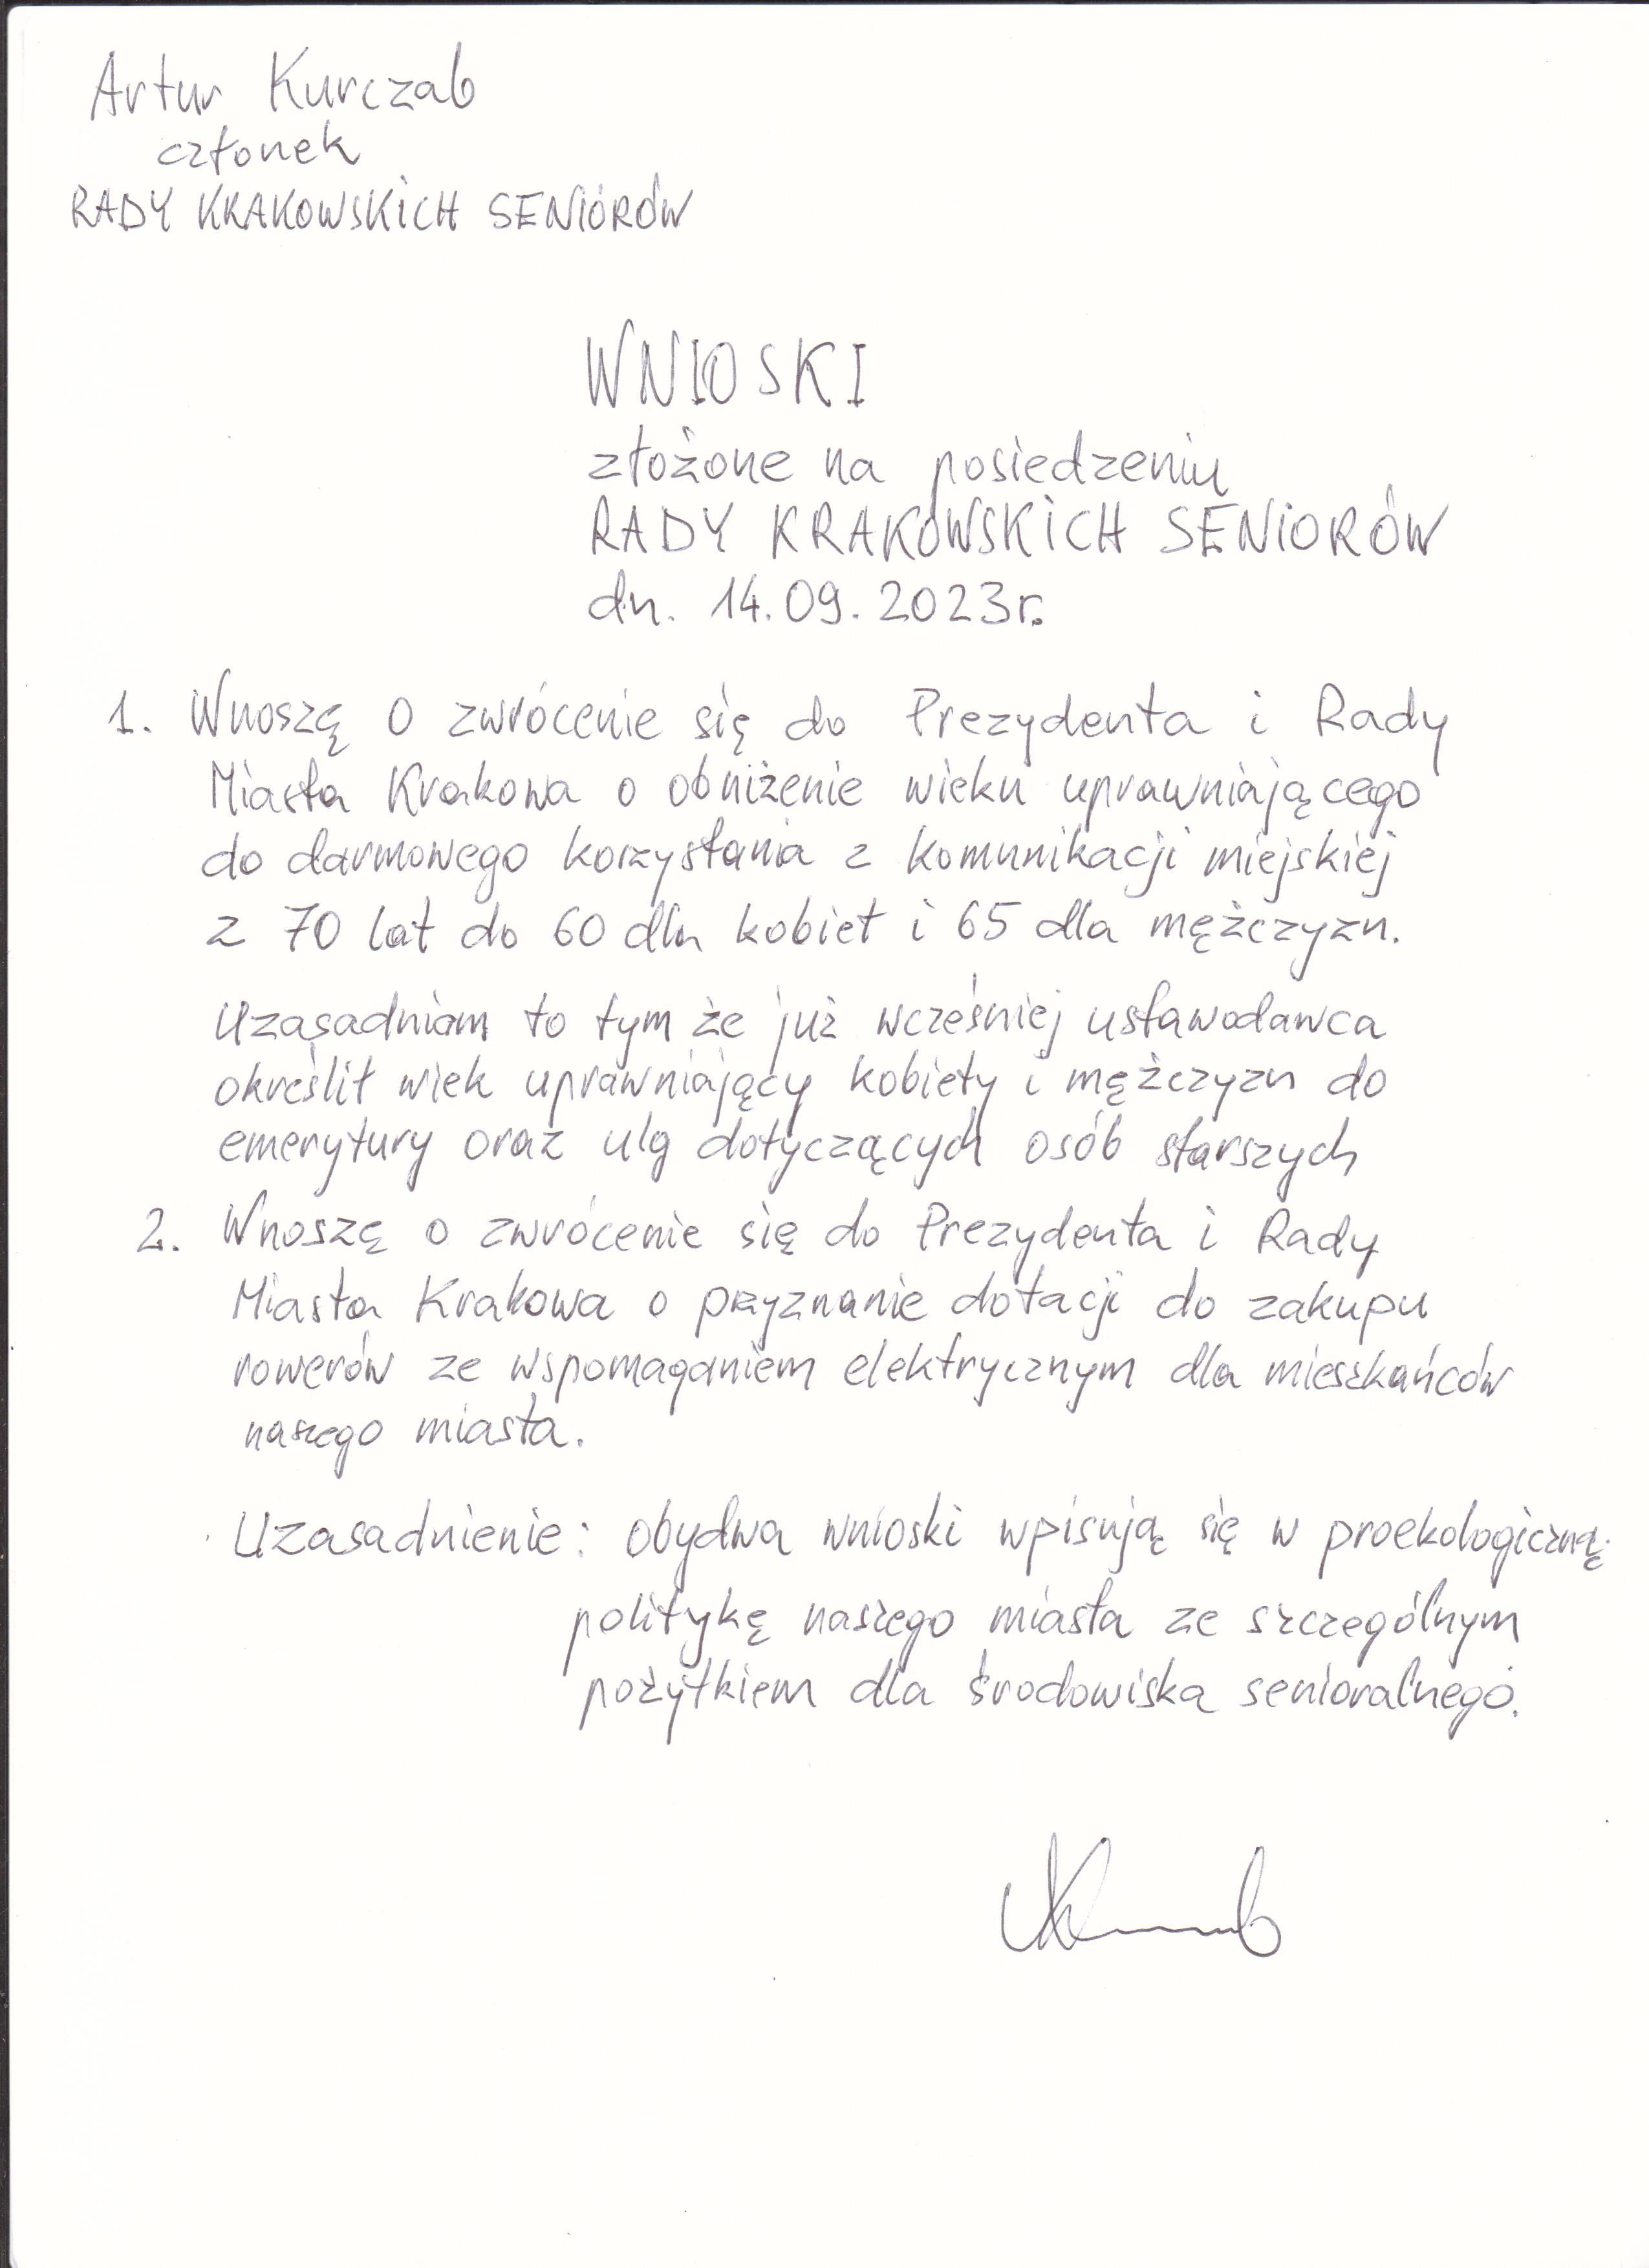 Artur Kurczab
członek
RADY KRAKOWSKICH SENIÓRÓW
WNIOSKI
złożone na posiedzeniu
RADY KRAKOWSKICH SENIORÓW
dn. 14.09.2023r.
1. Wnoszę o zwrócenie się do Prezydenta i Rady
Miasta Krakowa o obniżenie wieku uprawniającego
do darmowego korzystania z komunikacji miejskiej
z 70 lat do 60 dla kobiet i 65 dla mężczyzn.
Uzasadniam to tym że już wcześniej ustawodawca
określił wiek uprawniający kobiety i mężczyzn do
emerytury oraz ulg dotyczących osób starszych
2. Wnoszę o zwrócenie się do Prezydenta i Rady
Miasta Krakowa o przyznanie dotacji do zakupu
rowerów ze wspomaganiem elektrycznym dla mieszkańców
naszego miasta.
Uzasadnienie: obydwa wnioski wpisują się w proekologiczną
politykę naszego miasta ze szczególnym
pożytkiem dla środowiska senioralnego.